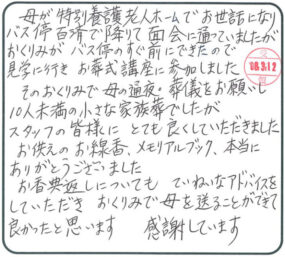 母が特別養護老人ホームでお世話になり
バス停百済で降りて面会に通っていましたが
おくりみがバス停のすぐ前にできたので
見学に行きお葬式講座に参加しました
そのおくりみで母の通夜・葬儀をお願いし
10人未満の小さな家族葬でしたが
スタッフの皆様にとても良くしていただきました
お供えのお線香、メモリアルブック、本当に
ありがとうございました
お香典返しについても ていねいなアドバイスを
していただき おくりみで母を送ることができて
良かったと思います 感謝しています
受
'08.9.12